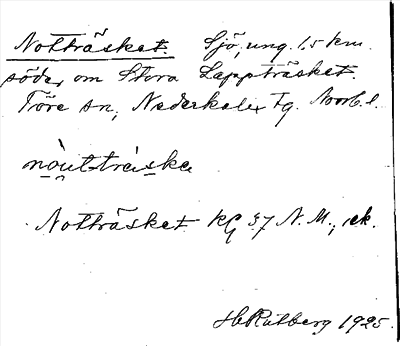 Notträsket. Sjö, ung. 1.5 km.
söder om Stora Lappträsket.
Töre sn, Nederkalix tg. Norrb. l.
Notträsket kG 37 N. M., ek.
H. Rutberg 1925.